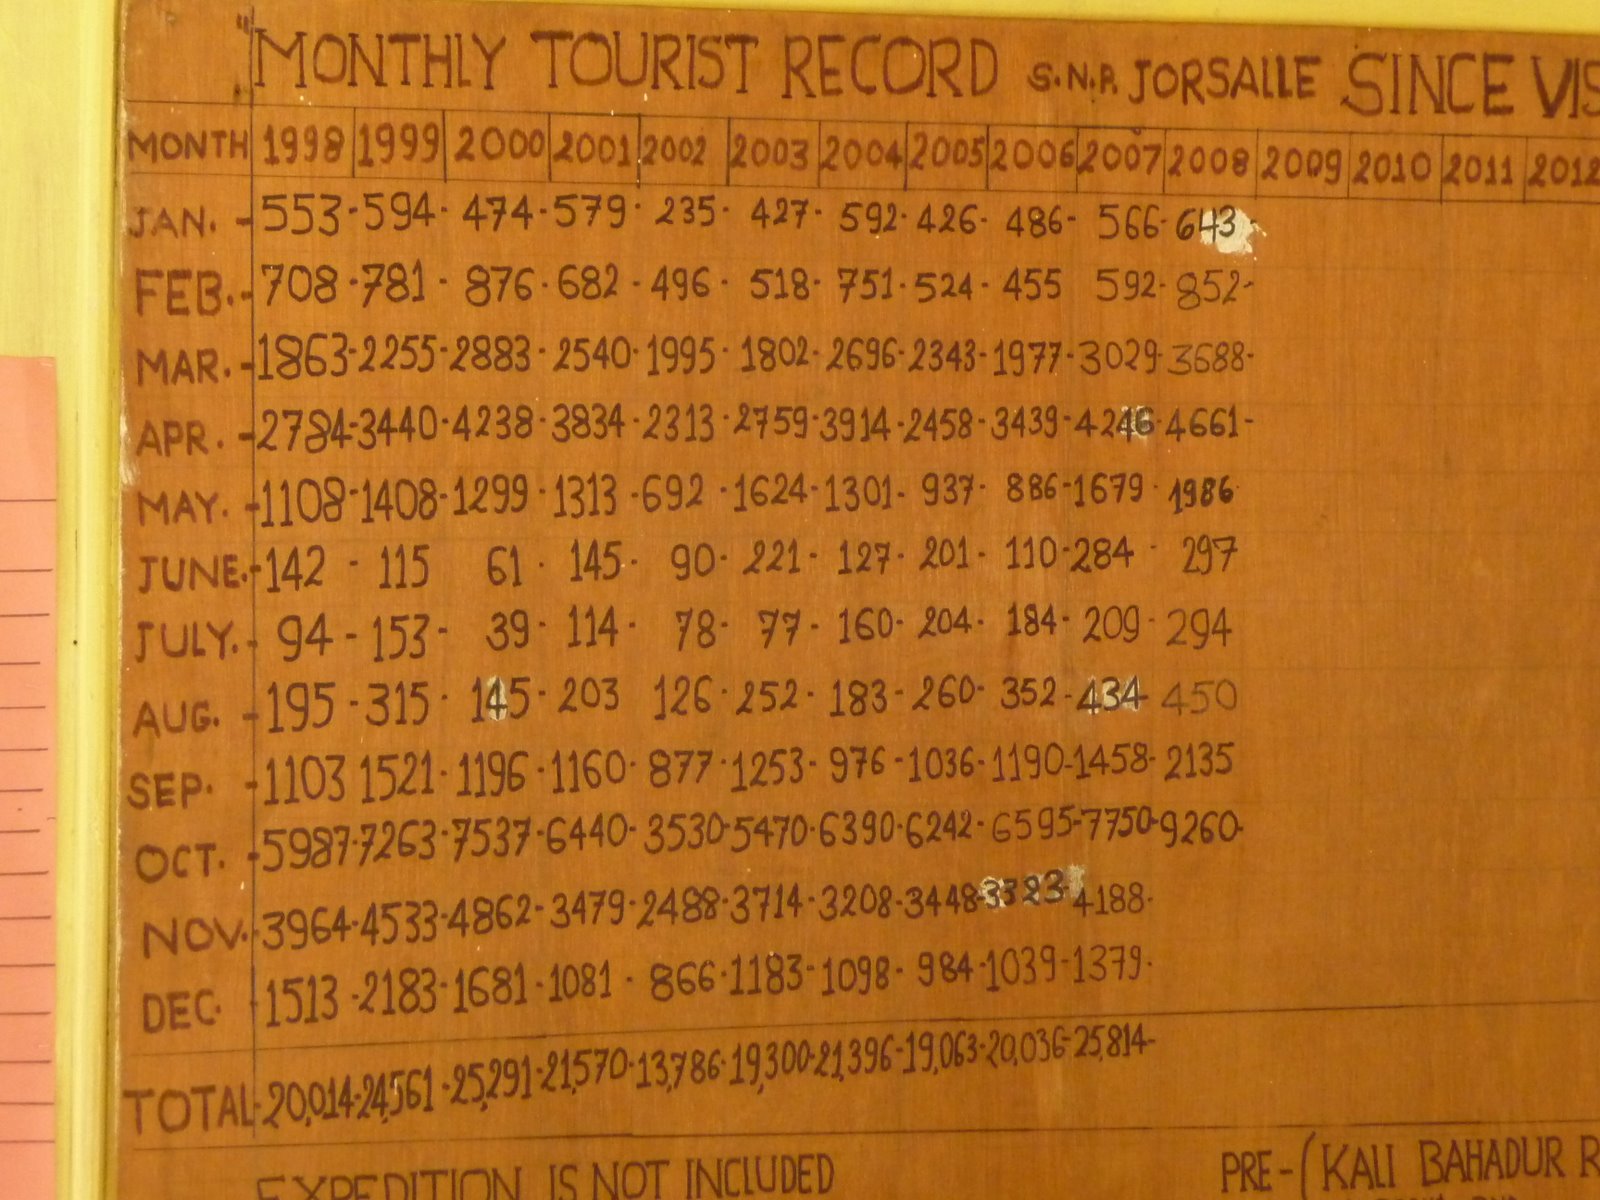 "MONTHLY TOURIST RECORD S.N.P. JORSALLE SINCE VIS
MONTH 1998 1999 2000 2001 2002 2003 2004 2005 2006 2007 2008 2009 2010 2011 2012
JAN. - 553 - 594 - 474 - 579 - 235 - 427 - 592 - 426 - 486 - 566 - 643 -
FEB. - 708 - 781 - 876 - 682 - 496 - 518 - 751 - 524 - 455 592 - 852 -
MAR. - 1863 - 2255 - 2883 - 2540 - 1995 - 1802 - 2696 - 2343 - 1977 - 3029 - 3688 -
APR. - 2784 - 3440 - 4238 - 3834 - 2313 - 2759 - 3914 - 2458 - 3439 - 4246 - 4661 -
MAY. - 1108 - 1408 - 1299 - 1313 - 692 - 1624 - 1301 - 937 - 886 - 1679 - 1986
JUNE. - 142 - 115 61 - 145 - 90 - 221 - 127 - 201 - 110 - 284 - 297
JULY. - 94 - 153 - 39 - 114 - 78 - 77 - 160 - 204 - 184 - 209 - 294
AUG. - 195 - 315 - 145 - 203 126 - 252 - 183 - 260 - 352 - 434 - 450
SEP. - 1103 1521 - 1196 - 1160 - 877 - 1253 - 976 - 1036 - 1190 - 1458 - 2135
OCT. - 5987 - 7263 - 7537 - 6440 - 3530 - 5470 - 6390 - 6242 - 6595 - 7750 - 9260 -
NOV. - 3964 - 4533 - 4862 - 3479 - 2488 - 3714 - 3208 - 3448 - 3323 - 4188 -
DEC. - 1513 - 2183 - 1681 - 1081 - 866 - 1183 - 1098 - 984 - 1039 - 1379 -
TOTAL - 20,014 - 24,561 - 25,291 - 21,570 - 13,786 - 19,300 - 21,396 - 19,063 - 20,036 - 25,814 -
EXPEDITION IS NOT INCLUDED PRE-(KALI BAHADUR R